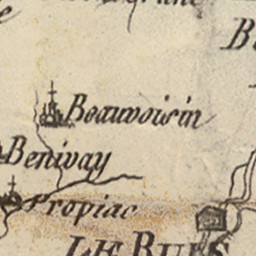 Beauvoisin
Benivay
Propiac
LE BUIS